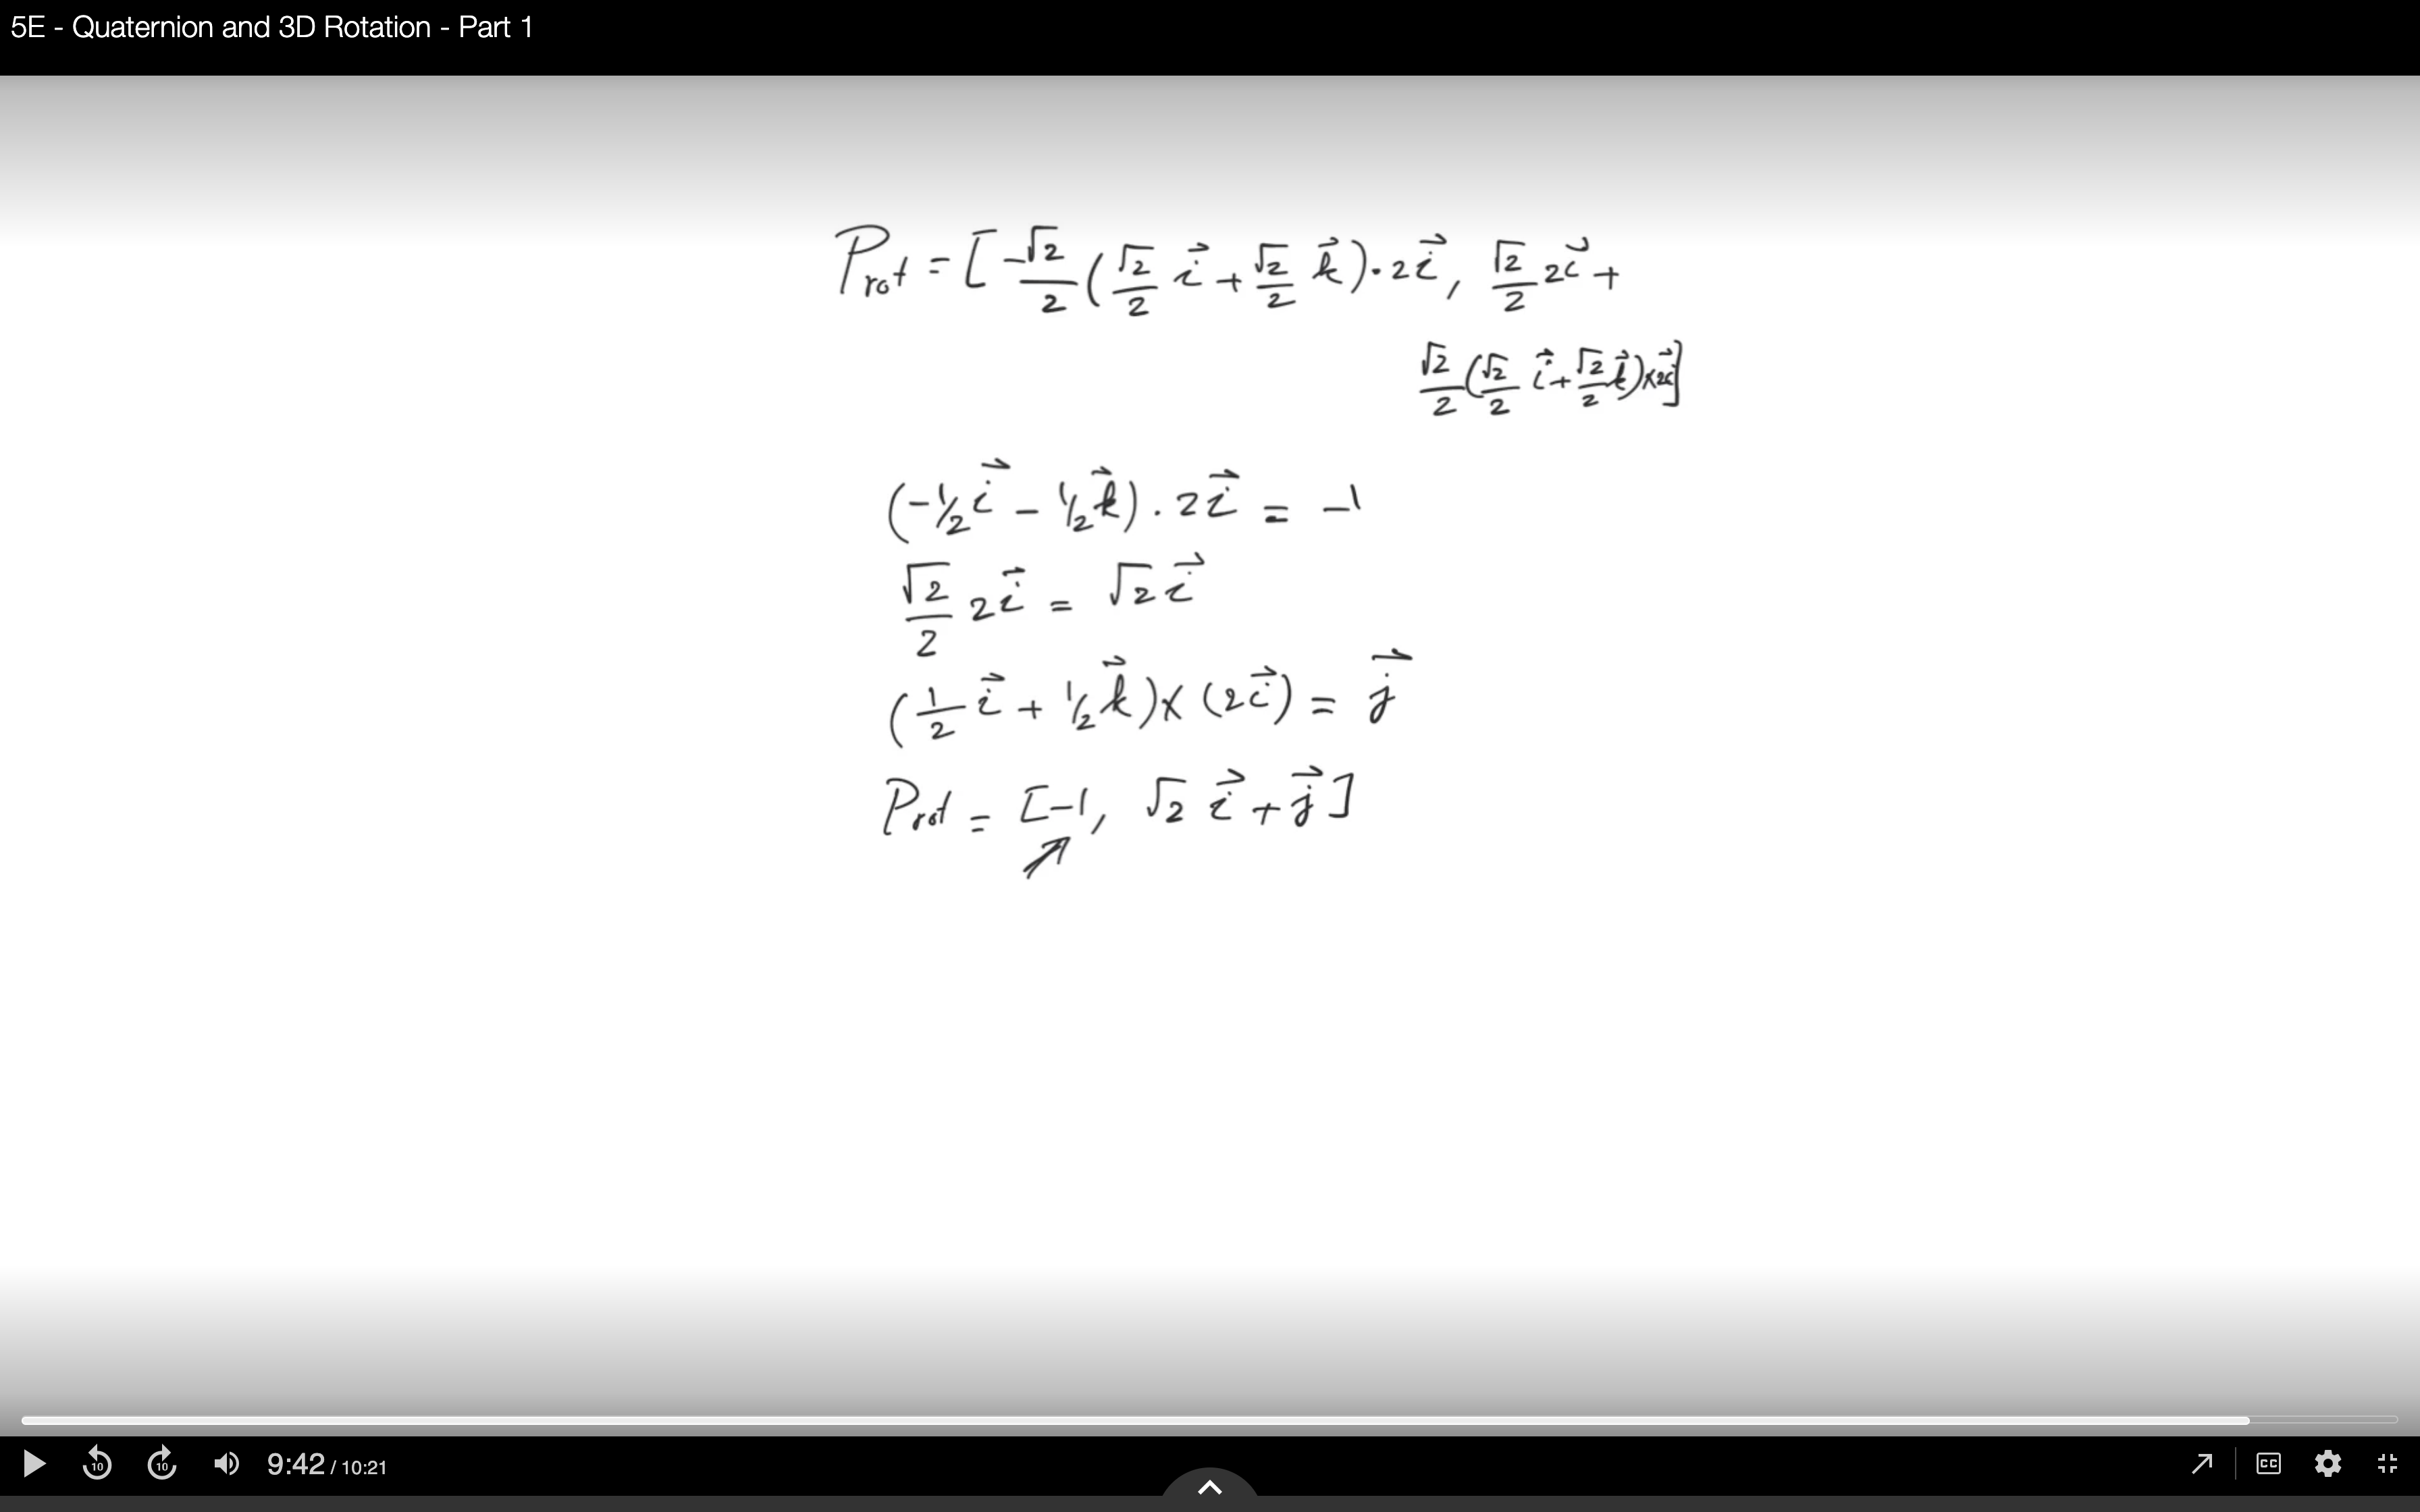 5E - Quaternion and 3D Rotation - Part 1
P_rot = [-√2/2 (√2/2 i⃗ + √2/2 k⃗) · 2i⃗, √2/2 2i⃗ +
√2/2 (√2/2 i⃗ + √2/2 k⃗) × 2i⃗]
(-1/2 i⃗ - 1/2 k⃗) · 2i⃗ = -1
√2/2 2i⃗ = √2 i⃗
(1/2 i⃗ + 1/2 k⃗) × (2i⃗) = j⃗
P_rot = [-1, √2 i⃗ + j⃗]
10 10 9:42 / 10:21 CC